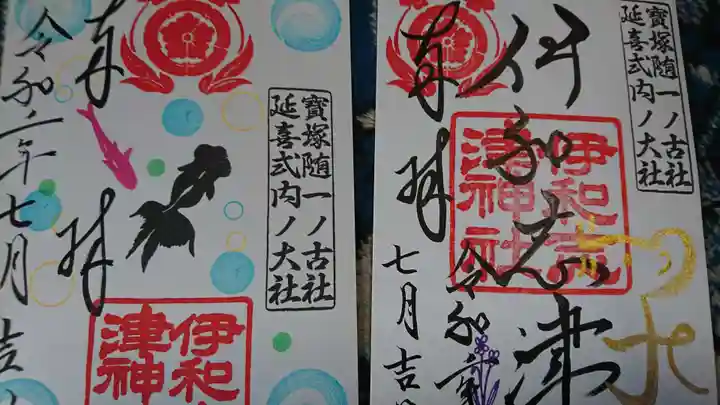 寶塚随一ノ古社
延喜式内ノ大社
奉拝
令和二年七月吉
伊和志
津神
寶塚随一ノ古社
延喜式内ノ大社
伊和志津
奉拝
伊和志
津神社
令和
七月吉